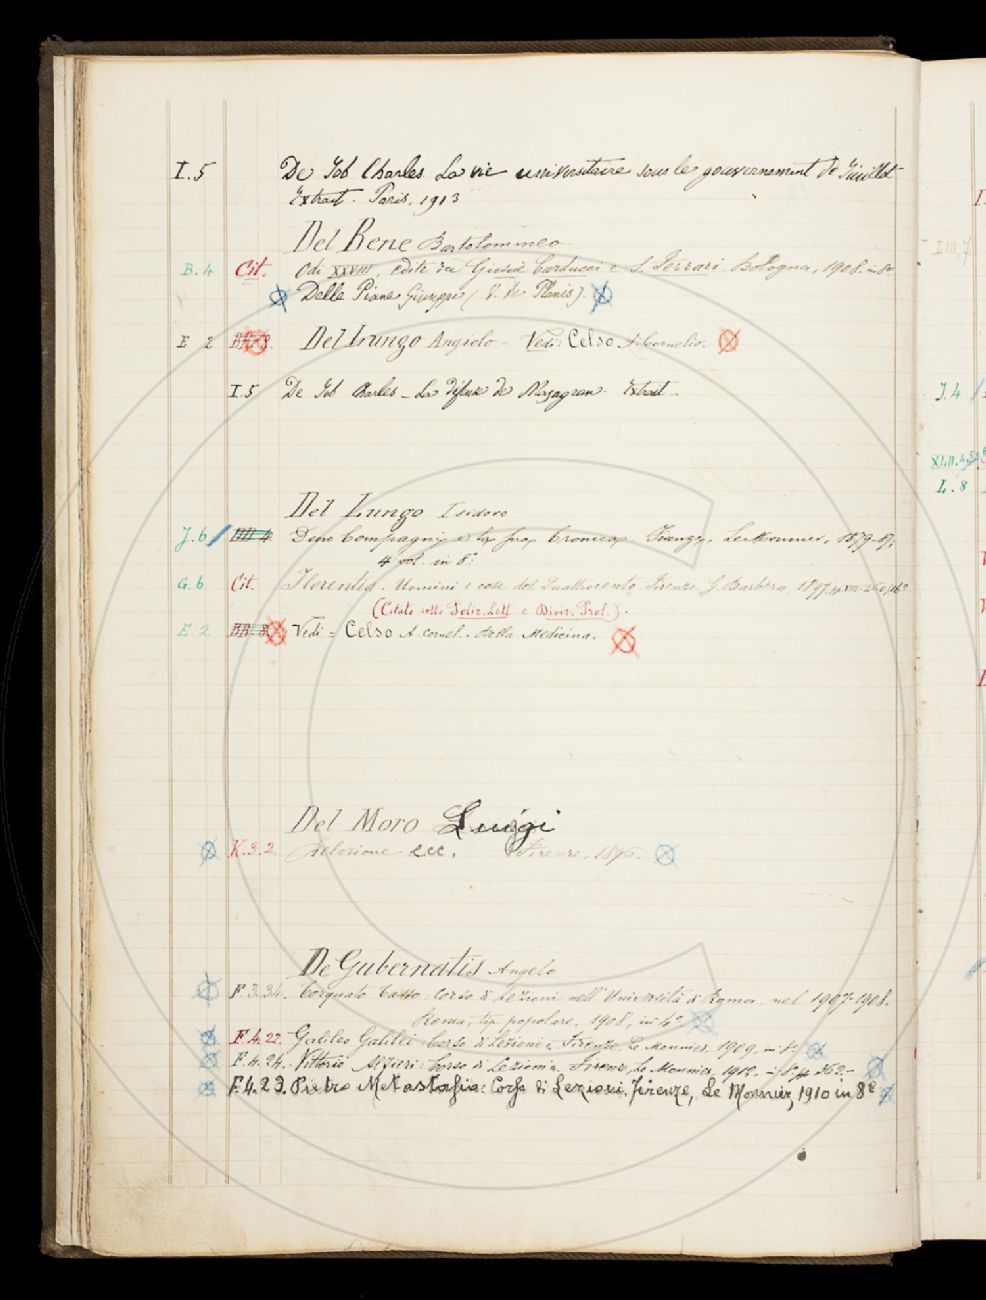 I. 5 De Job Charles. La vie universitaire sous le gouvernement de Juillet
Extrait. Paris, 1913
Del Bene Bartolommeo
B. 4 Cit. Odi XXVIII, edite da Giosuè Carducci e S. Ferrari. Bologna, 1908. in 8°
Delle Piane Giuseppe (V. De Planis).
E 2 Del Lungo Angiolo = Vedi: Celso A. Cornelio.
I. 5 De Job Charles - La défense de Mazagran. Extrait
Del Lungo Isidoro
J. 6 BB. 4 Dino Compagni e la sua Cronica. Firenze, Le Monnier, 1879-87.
4 vol. in 8°.
G. 6 Cit. Florentia. Uomini e cose del Quattrocento. Firenze, G. Barbèra, 1897.
(Citato nelle Poliz. Lett. e Divis. Prol.).
E. 2 BB. 8. Vedi = Celso A. Cornel. - Della Medicina.
Del Moro Luigi
K. 3. 2. Relazione ecc. Firenze,
De Gubernatis Angelo
F. 3. 34. Torquato Tasso: Corso di Lezioni nell'Università di Roma nel 1907-1908.
Roma, tip. popolare, 1908, in 4°
F. 4. 22. Galileo Galilei Corso di Lezioni. Firenze, Le Monnier, 1909. in 8°
F. 4. 24. Vittorio Alfieri: Corso di Lezioni. Firenze, Le Monnier, 1912. in 8° p. 362.-
F. 4. 23. Pietro Metastasio: Corso di Lezioni. Firenze, Le Monnier, 1910 in 8°
III, 7
J. 4
XLII. 4.
L. 8